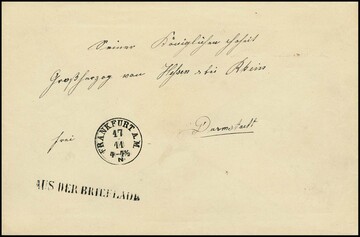 Seiner Königlichen Hoheit
Großherzog von Hessen & bei Rhein
frei
FRANKFURT A.M.
17
11
N.
Darmstadt
AUS DER BRIEFLADE